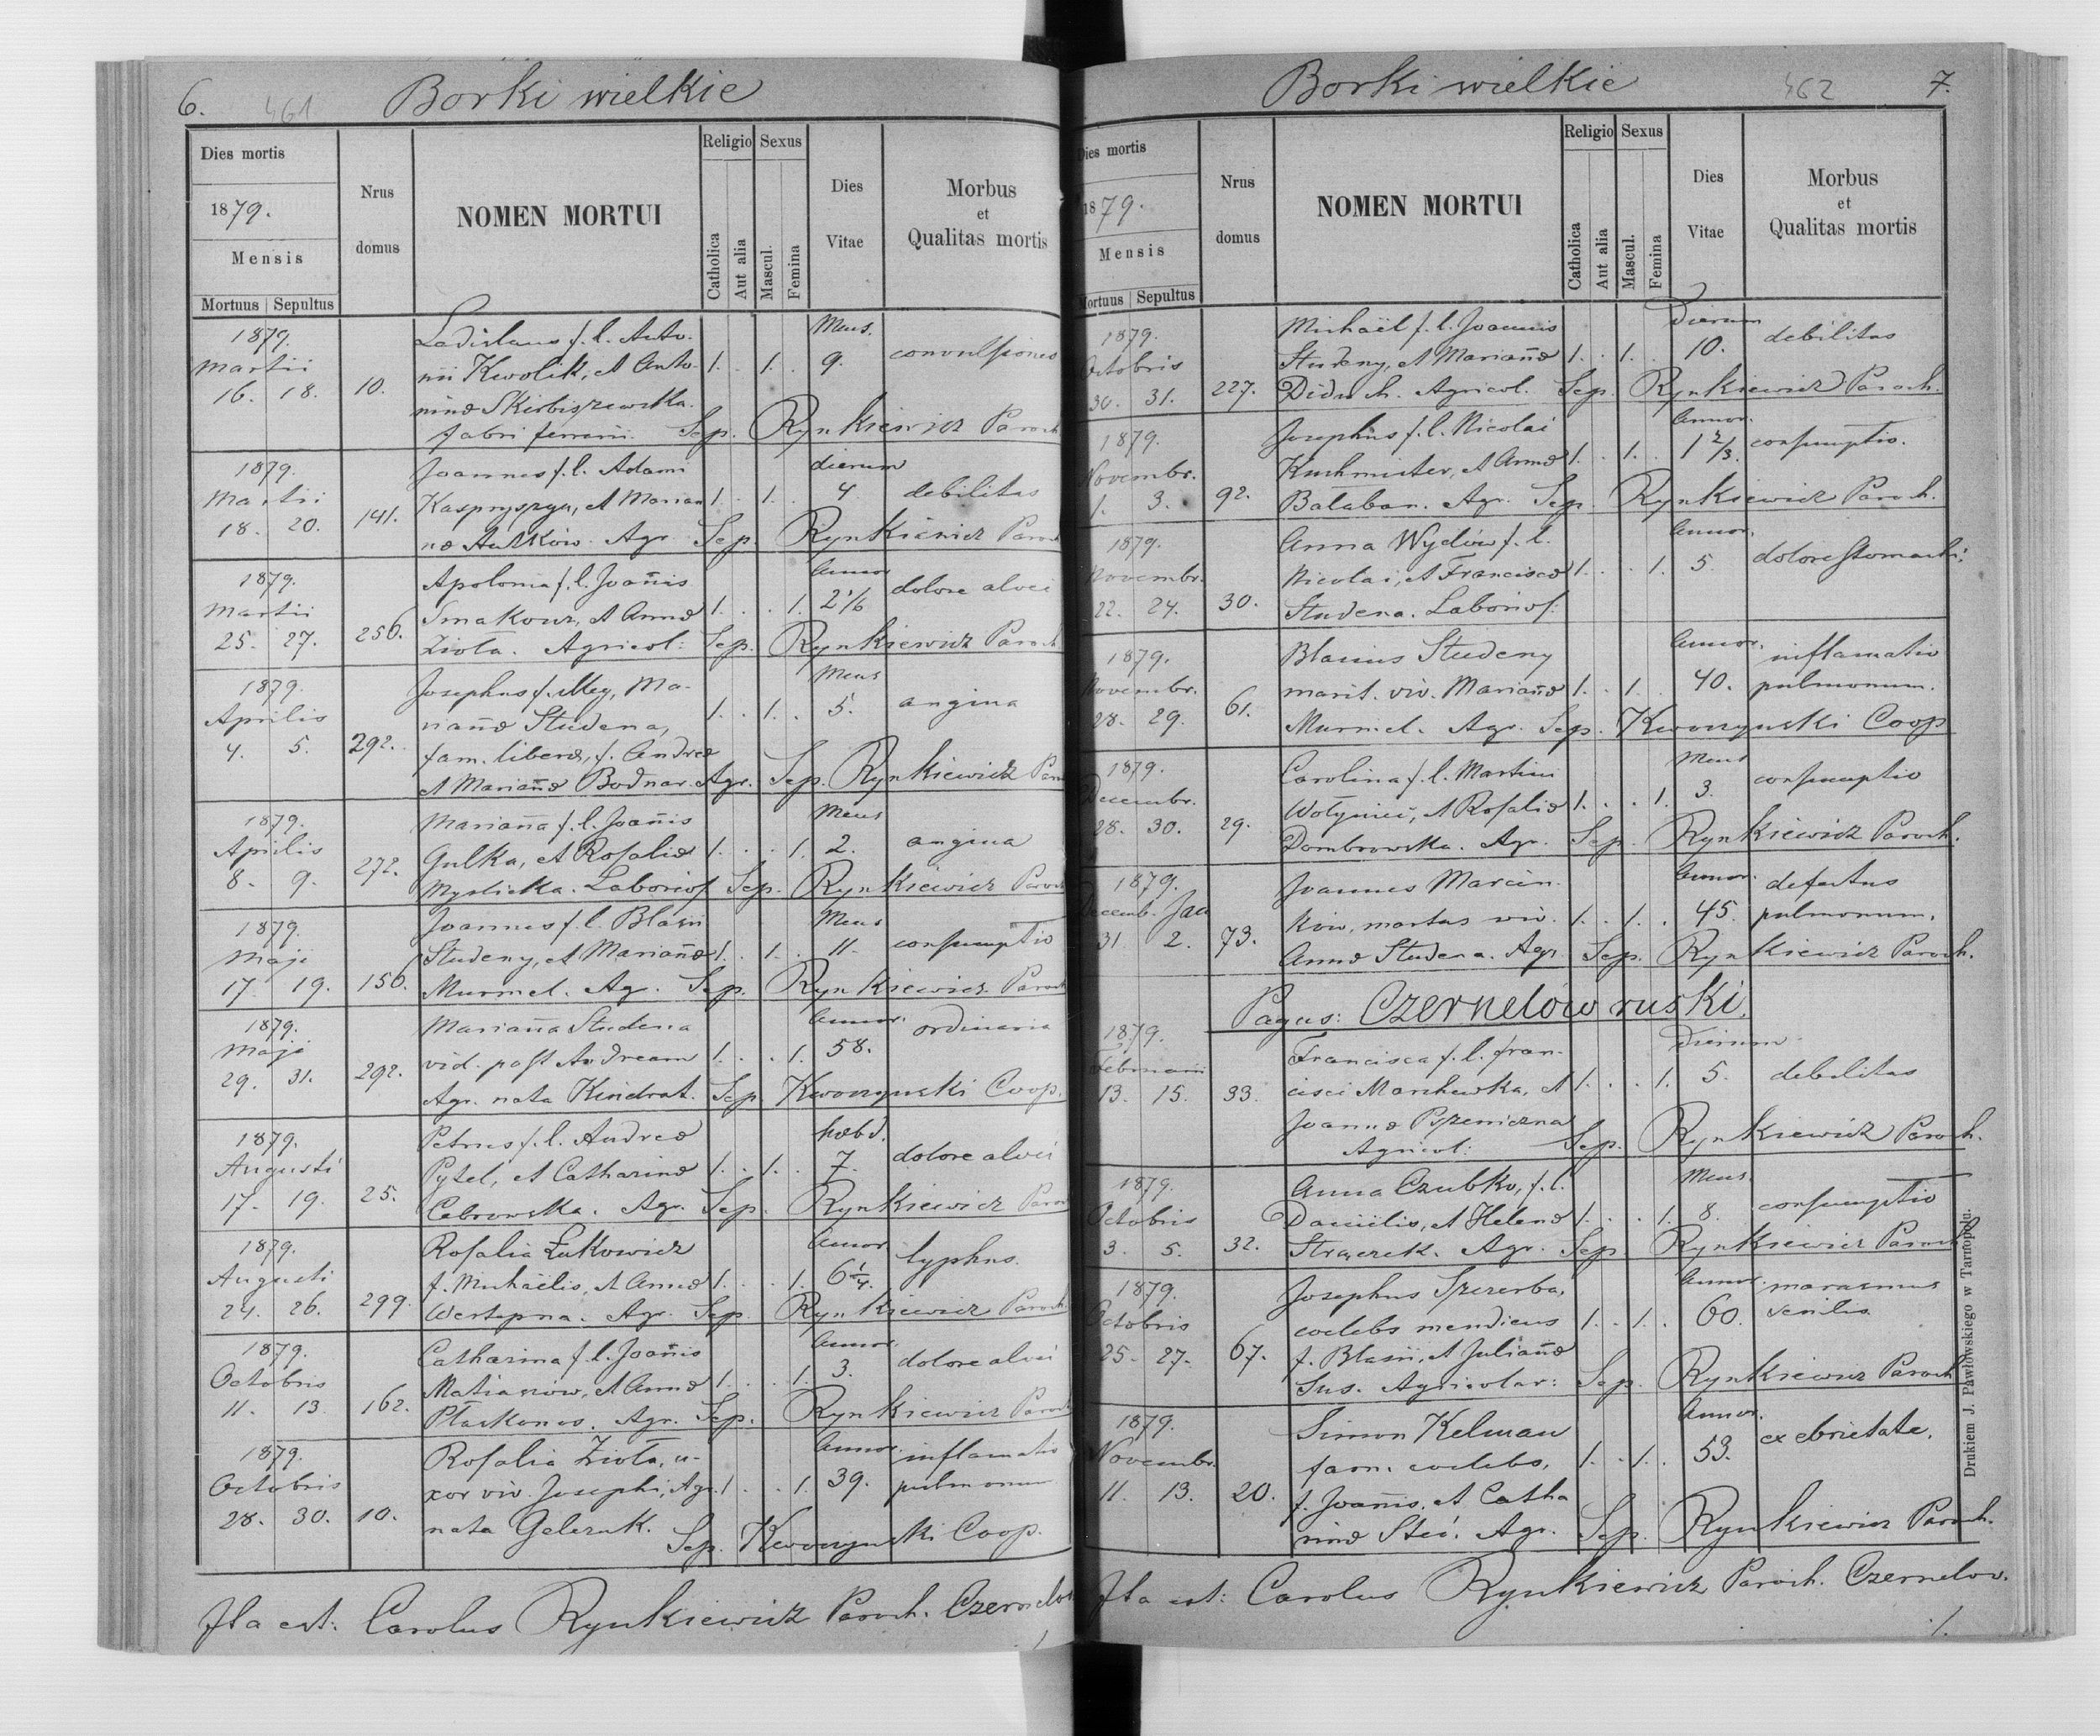 6. 461 Borki wielkie
Dies mortis
1879.
Mensis
Mortuus Sepultus
Nrus domus
NOMEN MORTUI
Religio
Catholica
Aut alia
Sexus
Mascul.
Femina
Dies Vitae
Morbus et Qualitas mortis
1879. Ladislaus f. l. Anto- Mens.
Martii nii Kwolik, et Anto- 1. 1. 9. convulsiones
16. 18. 10. ninæ Skirbiszewska
fabri ferrarii. Sep. Rynkiewicz Paroch
1879. Joannes f. l. Adami dierum
Martii Kaspryszyn, et Marian 1. 1. 4. debilitas
18. 20. 141. næ Autków. Agr. Sep. Rynkiewicz Paroch
1879. Apolonia f. l. Joañis Annor
Martii Smakowz, et Annæ 1. 1. 2 1/6 dolore alvei
25. 27. 256. Ziola. Agricol: Sep. Rynkiewicz Paroch
1879. Josephus f. illeg. Ma- Mens
Aprilis riañæ Studena, 1. 1. 5. angina
4. 5. 292. fam. liberæ, f. Andreæ
et Mariañæ Bodnar. Agr. Sep. Rynkiewicz Paro
1879. Mariaña f. l. Joañis Mens
Aprilis Gulka, et Rosaliæ 1. 1. 2. angina
8. 9. 272. Myslicka. Laborios Sep. Rynkiewicz Paroch
1879. Joannes f. l. Blasii Mens
Maji Studeny, et Mariañæ 1. 1. 11. consumptio
17. 19. 156. Murmel. Ag. Sep. Rynkiewicz Paroch
1879. Mariaña Studena Annor. ordinaria
Maji vid. post Andream 1. 1. 58.
29. 31. 292. Agr. nata Kindrat. Sep. Kwoczynski Coop.
1879. Petrus f. l. Andreæ hebd.
Augusti Pytel, et Catharinæ 1. 1. 7. dolore alvei
17. 19. 25. Cebrowska. Agr. Sep. Rynkiewicz Paro
1879. Rosalia Łukowicz Annor typhus.
Augusti f. Michaëlis, et Annæ 1. 1. 6 1/4.
24. 26. 299. Wertepna. Agr. Sep. Rynkiewicz Paroch
1879. Catharina f. l. Joañis Annor.
Octobris Matiasiów, et Annæ 1. 1. 3. dolore alvei
11. 13. 162. Płaskonos. Agr. Sep. Rynkiewicz Paroch
1879. Rosalia Ziola, u- Annor. inflamatio
Octobris xor viv. Josephi, Agr. 1. 1. 39. pulmonum
28. 30. 10. nata Gelezuk. Sep. Kwoczynski Coop.
Ita est: Carolus Rynkiewicz Paroch. Czernelov
Borki wielkie 462 7.
Dies mortis
1879.
Mensis
Mortuus Sepultus
Nrus domus
NOMEN MORTUI
Religio
Catholica
Aut alia
Sexus
Mascul.
Femina
Dies Vitae
Morbus et Qualitas mortis
1879. Michaël f. l. Joannis Dierum
Octobris Studeny, et Mariañæ 1. 1. 10. debilitas
30. 31. 227. Diduch. Agricol. Sep. Rynkiewicz Paroch.
1879. Josephus f. l. Nicolai Annor.
Novembr. Kuchmister, et Annæ 1. 1. 1 2/3. consumptio.
1. 3. 92. Balaban. Agr. Sep Rynkiewicz Paroch.
1879. Anna Wydów f. l. Annor.
Novembr. Nicolai, et Franciscæ 1. 1. 5. dolore stomachi:
22. 24. 30. Studena. Laborios:
1879. Blasius Studeny Annor. inflamatio
Novembr. marit. viv. Mariañæ 1. 1. 40. pulmonum.
28. 29. 61. Murmel. Agr. Sep. Kwoczynski Coop
1879. Carolina f. l. Martini Mens
Decembr. Wołyniei, et Rosaliæ 1. 1. 3. consumptio
28. 30. 29. Dombrowska. Agr. Sep. Rynkiewicz Paroch.
1879. Joannes Marcin- Annor. defectus
Decemb. Jan ków, maritus viv. 1. 1. 45. pulmonum.
31. 2. 73. Annæ Studena. Agr Sep. Rynkiewicz Paroch.
Pagus: Czernelów ruski.
1879. Francisca f. l. Fran- Dierum
Februarii cisci Marchewka, et 1. 1. 5. debilitas
13. 15. 33. Joannæ Pszeniczna
Agricol: Sep. Rynkiewicz Paroch.
1879. Anna Czubko, f. l. Mens.
Octobris Daniilis, et Helenæ 1. 1. 8. consumptio
3. 5. 32. Strączek. Agr. Sep. Rynkiewicz Paroch
1879. Josephus Szczerba, Annor. marasmus
Octobris coelebs mendicus 1. 1. 60. senilis.
25. 27. 67. f. Blasii, et Juliañæ
Sus. Agricolar: Sep. Rynkiewicz Paroch
1879. Simon Kelman Annor.
Novembr. fam. coelebs, 1. 1. 53. ex ebrietate.
11. 13. 20. f. Joañis, et Catha
rinæ Steć. Agr. Sep. Rynkiewicz Paroch.
Ita est: Carolus Rynkiewicz Paroch. Czernelov.
Drukiem J. Pawłowskiego w Tarnopolu.